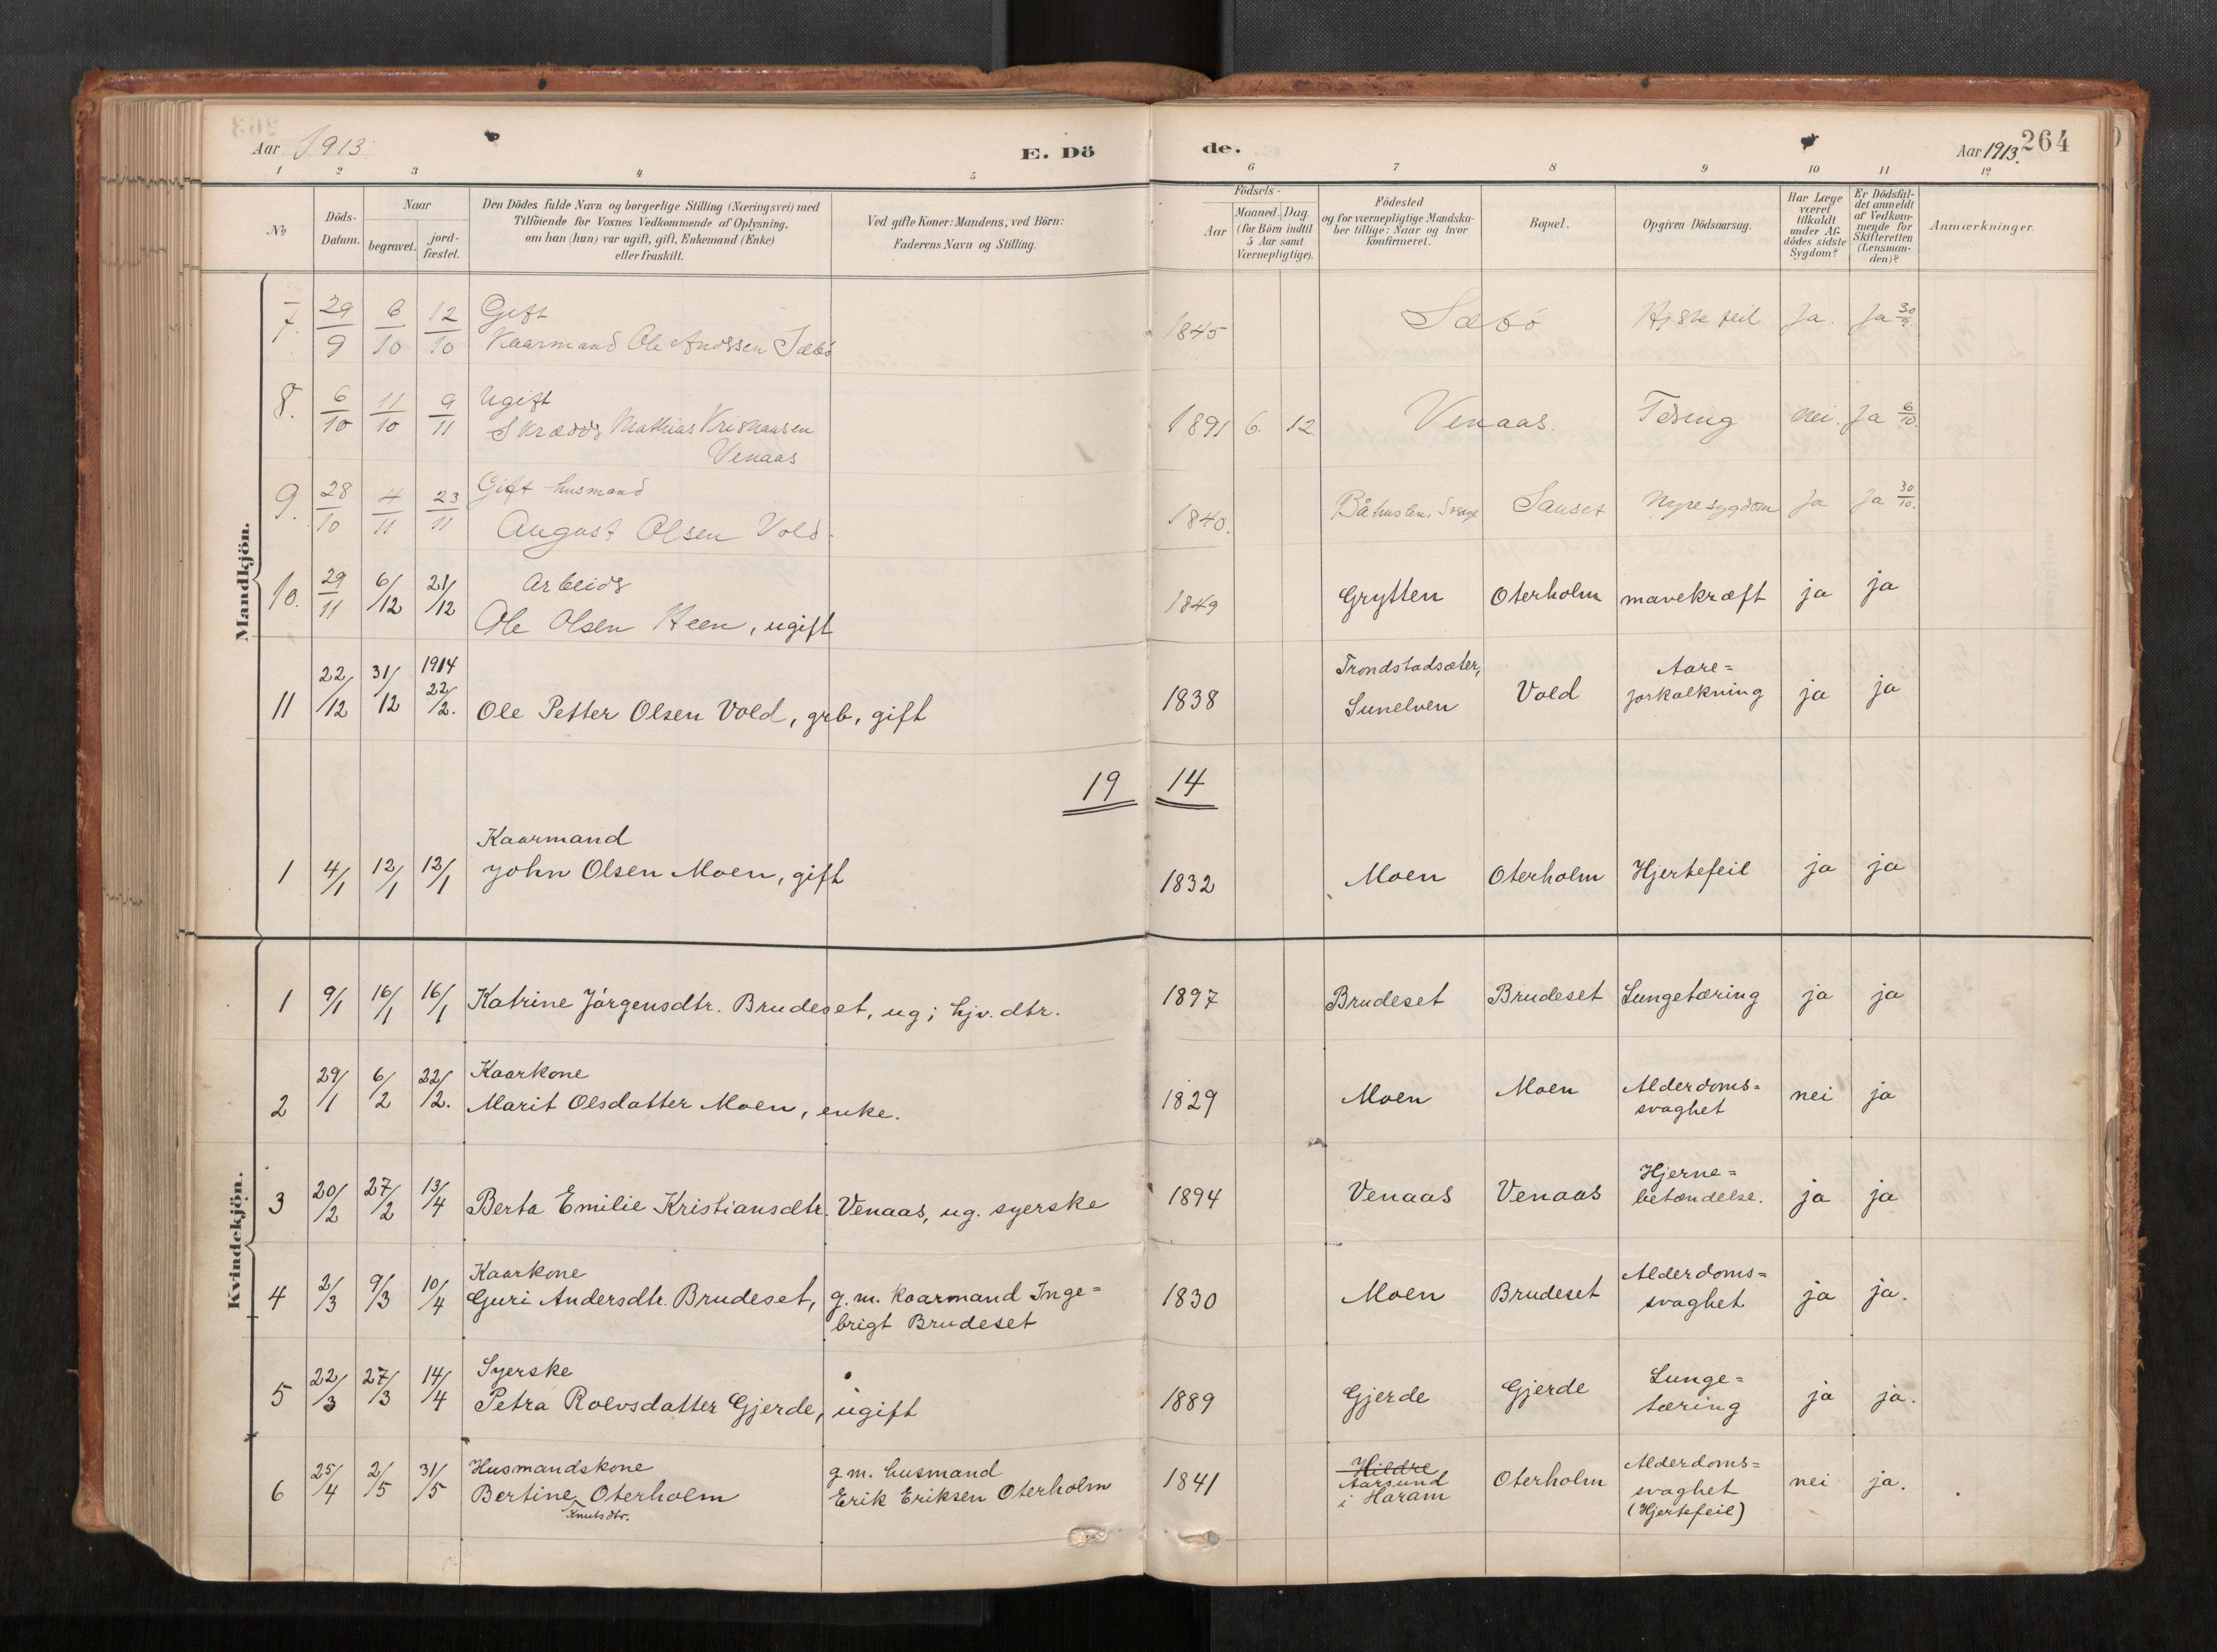 Aar 1913
E. Dö
de.
Aar 1913.
264
1 2 3 4 5 6 7 8 9 10 11 12
No
Döds-Datum.
Naar
begravet.
jord-fæstet.
Den Dödes fulde Navn og borgerlige Stilling (Næringsvei) med
Tilföiende for Voxnes Vedkommende af Oplysning,
om han (hun) var ugift, gift, Enkemand (Enke)
eller fraskilt.
Ved gifte Koner: Mandens, ved Börn:
Faderens Navn og Stilling.
Födsels-
Aar
Maaned. Dag
(for Börn indtil
5 Aar samt
Værnepligtige).
Födested
og for værnepligtige Mandska-
ber tillige: Naar og hvor
konfirmeret.
Bopæl.
Opgiven Dödsaarsag.
Har Læge
været
tilkaldt
under Af-
dödes sidste
Sygdom?
Er Dödsfal-
det anmeldt
af Vedkom-
mende for
Skifteretten
(Lensman-
den)?
Anmærkninger.
Mandkjön.
7. 29/9 6/10 12/10 Gift
Kaarmand Ole Andssen Sæbö 1845 Sæbö feil Ja. Ja 30/9
8. 6/10 11/10 9/11 Ugift
Mathias Kristiansen
Venaas 1891 6. 12 Venaas. Tæring nei. Ja 6/10.
9. 28/10 4/11 23/11 Gift husmand
August Olsen Vold. 1840. Båhuslen. Sverige Sauset Nyresygdom Ja Ja 30/10.
10. 29/11 6/12 21/12 Arbeider
Ole Olsen Heen, ugift 1849 Grytten Oterholm mavekræft ja ja
11 22/12 31/12 1914 22/2. Ole Petter Olsen Vold, grb, gift 1838 Trondstadsæter, Sunelven Vold Aare=
forkalkning ja ja
19 14
1 4/1 12/1 12/1 Kaarmand
John Olsen Moen, gift 1832 Moen Oterholm Hjertefeil ja ja
Kvindekjön.
1 9/1 16/1 16/1 Katrine Jörgensdtr. Brudeset, ug; hjv. dtr. 1897 Brudeset Brudeset Lungetæring ja ja
2 29/1 6/2 22/2. Kaarkone
Marit Olsdatter Moen, enke. 1829 Moen Moen Alderdoms=
svaghet nei ja
3 20/2 27/2 13/4 Berta Emilie Kristiansdtr. Venaas, ug. syerske 1894 Venaas Venaas Hjerne=
betændelse. ja ja
4 2/3 9/3 10/4 Kaarkone
Guri Andersdtr. Brudeset, g. m. kaarmand Inge=
brigt Brudeset 1830 Moen Brudeset Alderdoms=
svaghet ja ja.
5 22/3 27/3 14/4 Syerske
Petra Roevsdatter Gjerde, ugift 1889 Gjerde Gjerde Lunge=
tæring ja ja.
6 25/4 2/5 31/5 Husmandskone
Bertine Knutsdtr. Oterholm g. m. husmand
Erik Eriksen Oterholm 1841 Hildre
Aarsund
i Haram Oterholm Alderdoms=
svaghet
(Hjertefeil) nei ja.